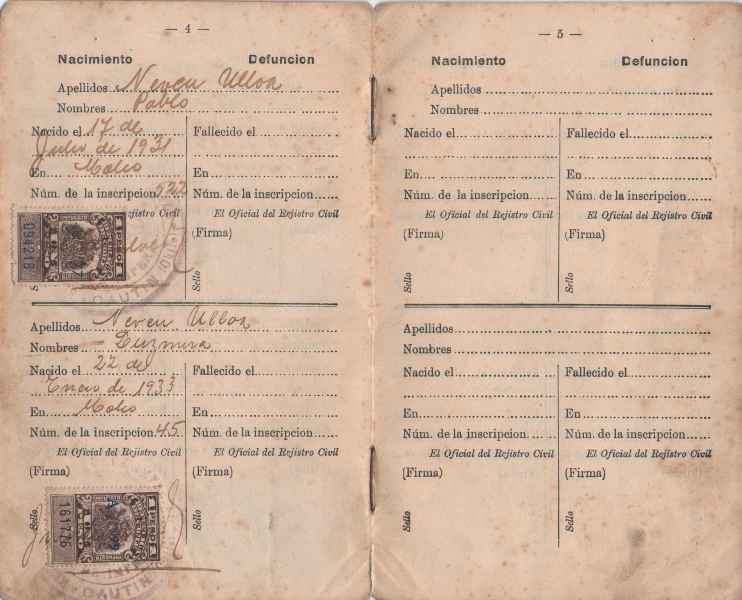 — 4 —
Nacimiento Defuncion
Apellidos Neveu Ulloa
Nombres Pablo
Nacido el 17 de
Julio de 1931
En
Núm. de la inscripcion
Fallecido el
En
Núm. de la inscripcion
ejistro Civil
El Oficial del Rejistro Civil
(Firma)
Sello
094218
1 PESO 1
CAUTIN
Apellidos Neveu Ulloa
Nombres Luzmira
Nacido el 22 del
Enero de 1933
En
Núm. de la inscripcion 45
El Oficial del Rejistro Civil
(Firma)
Sello
Fallecido el
En
Núm. de la inscripcion
El Oficial del Rejistro Civil
(Firma)
Sello
1 PESO 1
CAUTIN
— 5 —
Nacimiento Defuncion
Apellidos
Nombres
Nacido el
En
Núm. de la inscripcion
El Oficial del Rejistro Civil
(Firma)
Sello
Fallecido el
En
Núm. de la inscripcion
El Oficial del Rejistro Civil
(Firma)
Sello
Apellidos
Nombres
Nacido el
En
Núm. de la inscripcion
El Oficial del Rejistro Civil
(Firma)
Sello
Fallecido el
En
Núm. de la inscripcion
El Oficial del Rejistro Civil
(Firma)
Sello